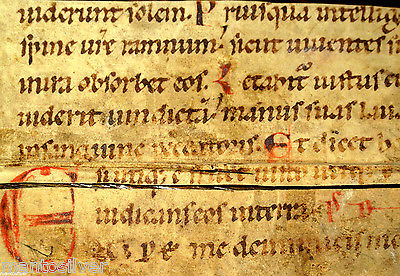 uiderunt solem. Priusquā intellige
spine ur̄e ramnum. sicut uiuentes si
in ira obsorbet eos. Letabit᷑ iustus cū
uiderit uindictā. manus suas laua
in sanguine peccatoris. Et dicet h
iusto
iudicans eos in terra
E RIPE me de inimicis me
montosilver